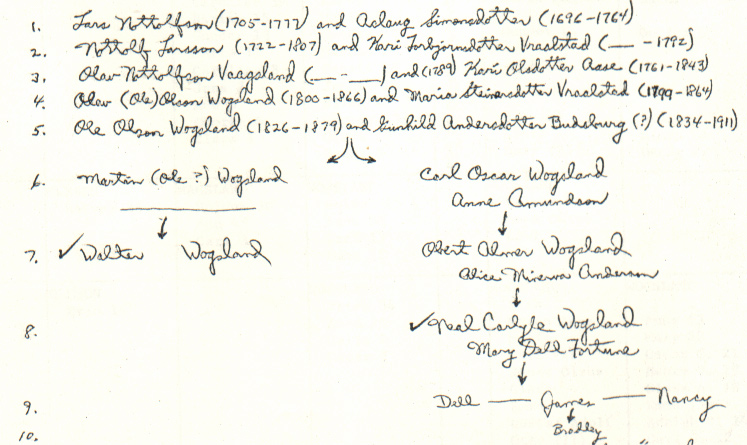 1. Lars Nottolfson (1705-1777) and Aslaug Simonsdotter (1696-1764)
2. Nottolf Larsson (1722-1807) and Kari Torbjornsdotter Vraalstad (__ -1792)
3. Olav Nottolfson Vaagsland (__-__) and (1789) Kari Olsdotter Aase (1761-1843)
4. Olav (Ole) Olson Wogsland (1800-1866) and Maria Steinarsdotter Vraalstad (1799-1864)
5. Ole Olson Wogsland (1826-1879) and Gunhild Andersdotter (?) (1834-1911)
6. Martin (Ole ?) Wogsland Carl Oscar Wogsland
Anne Amundson
7. ✓ Walter Wogsland Obert Almer Wogsland
Alice Minerva Anderson
8. ✓ Neal Carlyle Wogsland
Mary Dell Fortune
9. Dell — James — Nancy
Bradley
10.